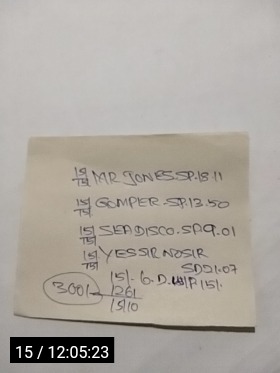 15/15 MR JONES.SP.18 11
15/15 GOMPER.SP.13.50
15/15 SEADISCO.SP.9.01
15/15 YES SIR NO SIR
SP.21.07
15/. 6.D.W/P 15/.
300/- 1261
1510
15 / 12:05:23